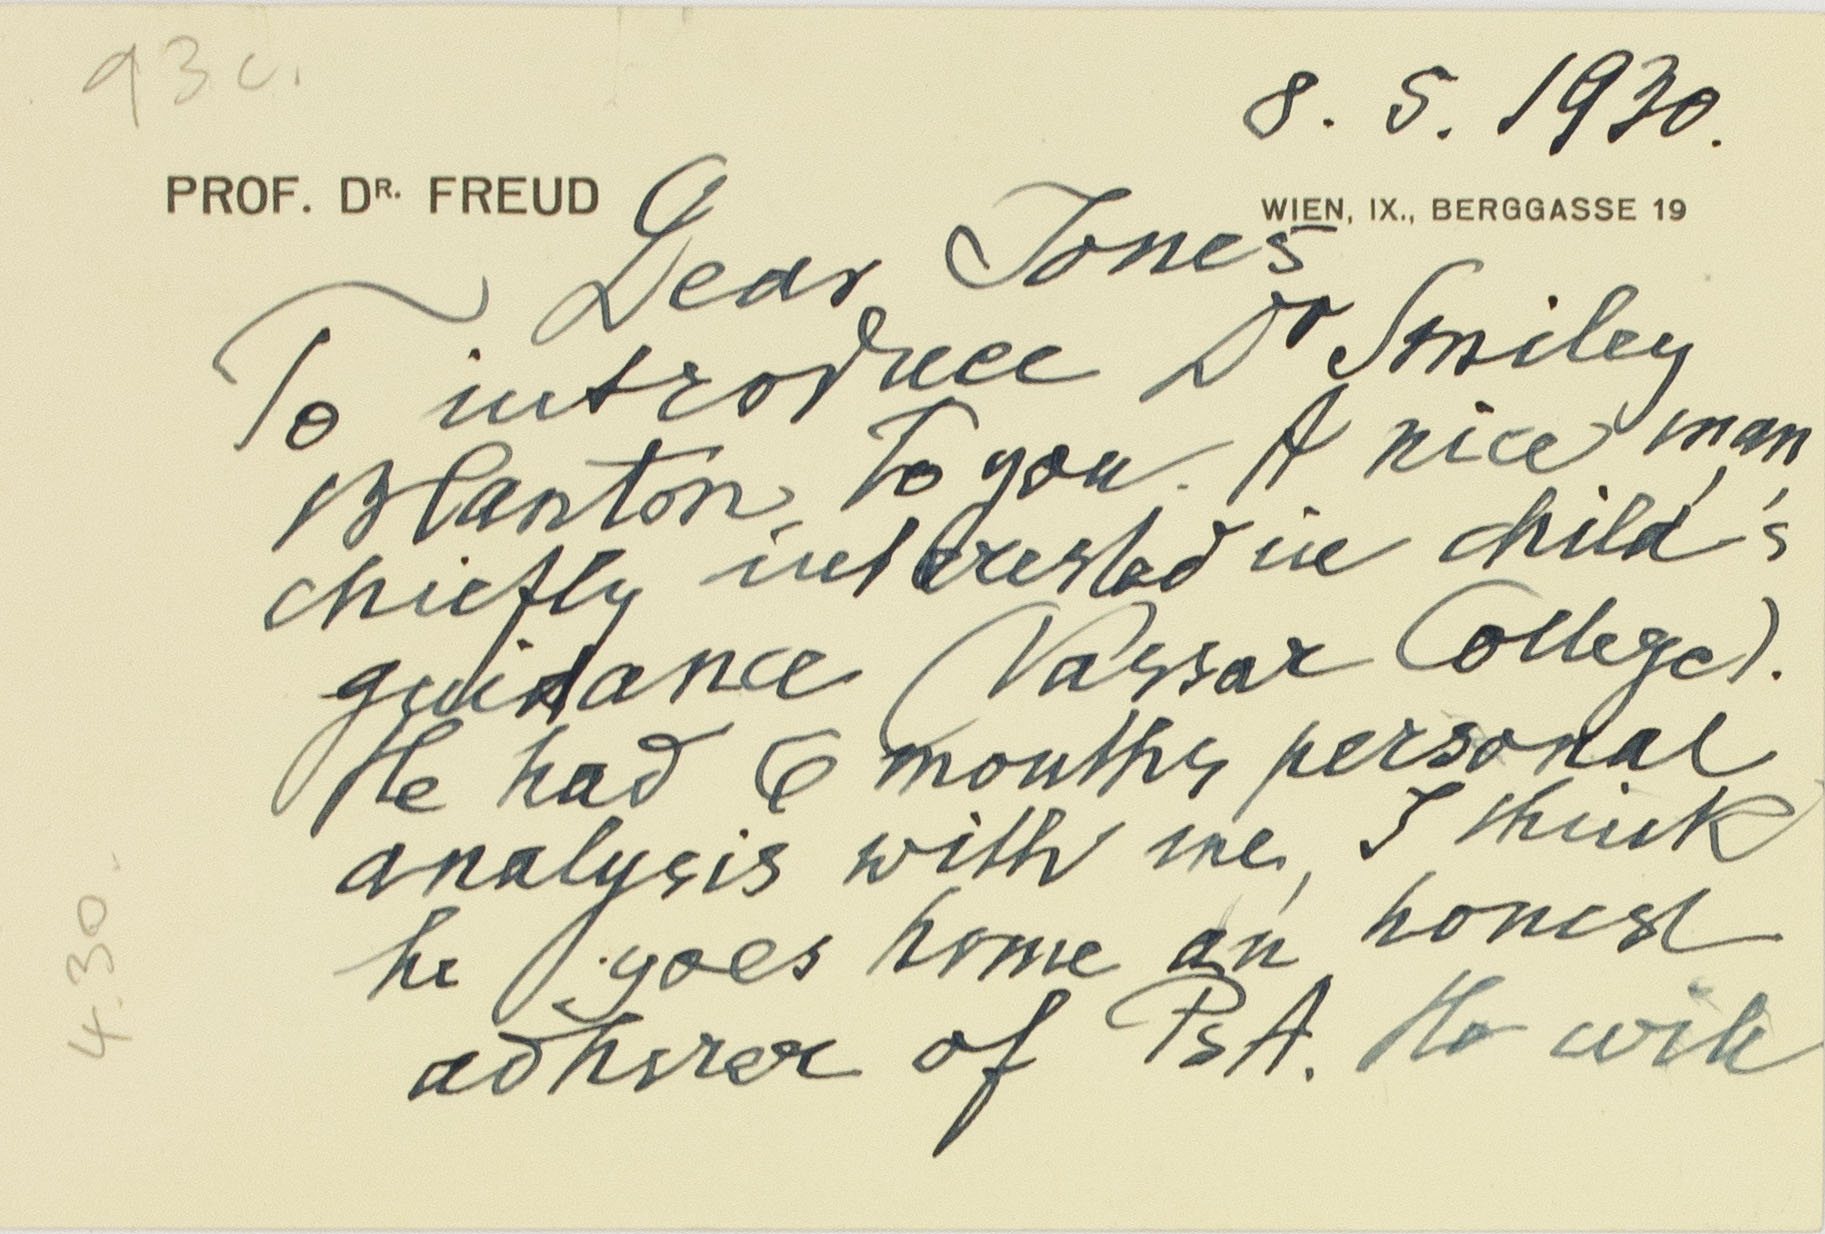 93c.
8. 5. 1930.
PROF. DR. FREUD
WIEN, IX., BERGGASSE 19
Dear Jones
To introduce Dr Smiley
Blanton, to you. A nice man,
chiefly interested in child's
guidance (Vassar College).
He had 6 months personal
analysis with me, I think
he goes home an honest
adherer of PsA. He will
4.30.